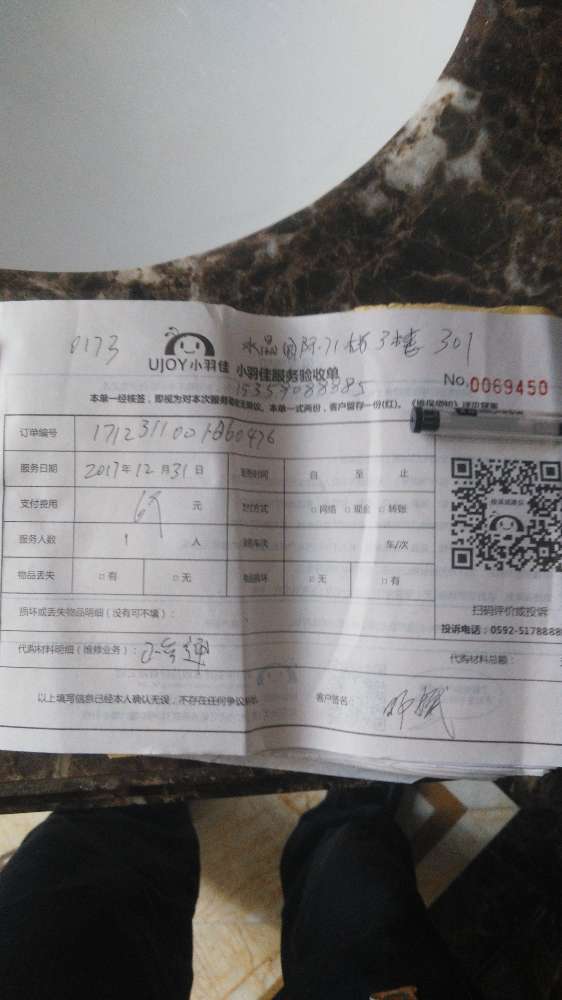 0173 水晶国际71栋3楼 301
UJOY小羽佳 小羽佳服务验收单
15359088385
No.0069450
本单一经核签，即视为对本次服务 议。本单一式两份，客户留存一份(红)。
订单编号
服务日期 2017年12月31日 服务时间 自 至 止
支付费用 元 支付方式 □网络 □现金 □转账
服务人数 1 人 车次 车/次
物品丢失 □有 □无 物品损坏 □无 □有
扫码评价或投诉
损坏或丢失物品明细（没有可不填）：
投诉电话：0592-5178888
代购材料明细（维修业务）： 代购材料总额：
以上填写信息已经本人确认无误，不存在任何争议 客户签名：